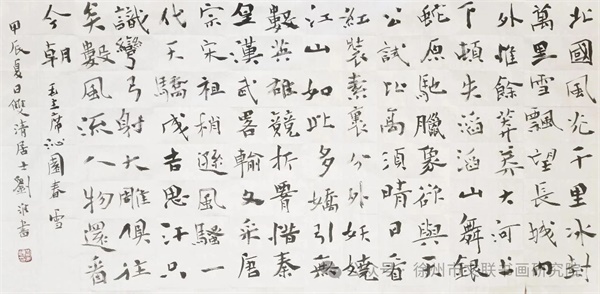 北國風光千里冰封
萬里雪飄望長城内
外惟餘莽莽大河上
下頓失滔滔山舞銀
蛇原馳臘象欲與天
公試比高須晴日看
紅裝素裹分外妖嬈
江山如此多嬌引無
數英雄競折腰惜秦
皇漢武畧輸文采唐
宗宋祖稍遜風騷一
代天驕成吉思汗只
識彎弓射大雕俱往
矣數風流人物還看
今朝 毛主席沁園春雪
甲辰夏日雙清居士劉書
公众号·徐州市楹联书画研究院